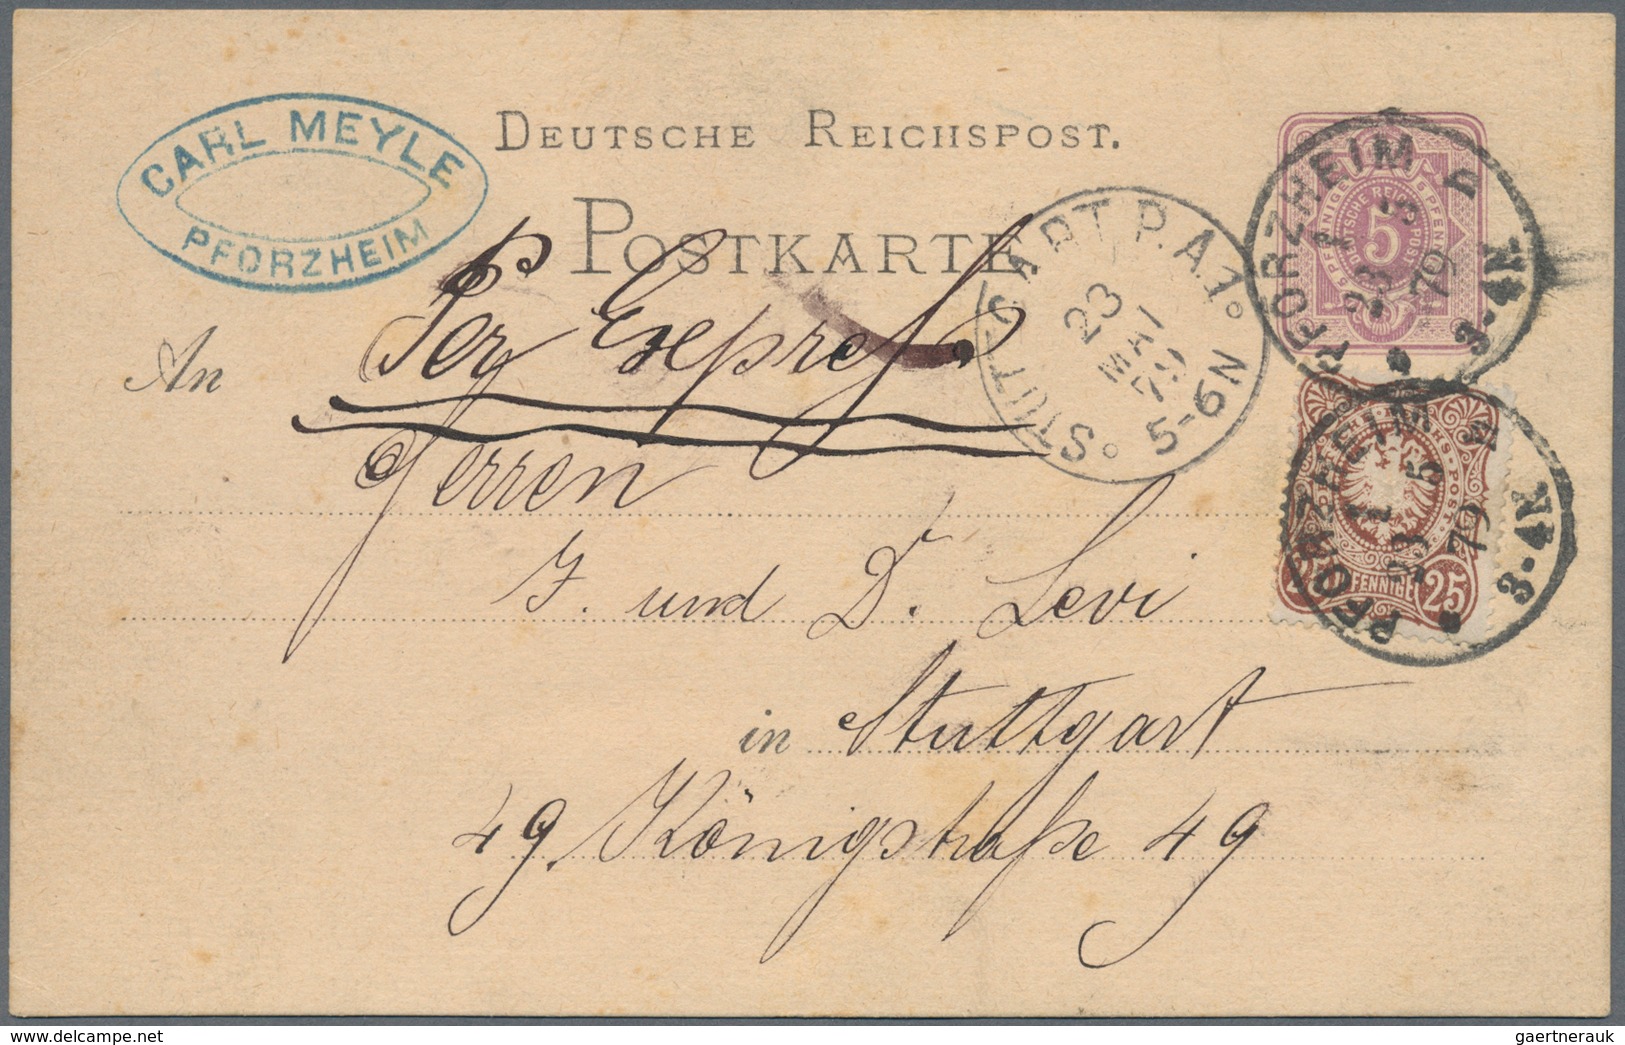 CARL MEYLE
PFORZHEIM
DEUTSCHE REICHSPOST.
POSTKARTE
An
Per Expreß
Herren
J. und D. Levi
in Stuttgart
49. Königstraße 49
STUTTGART P.A.1.
23
MAI
79
5-6N
PFORZHEIM
23 5
79
3-4N
5
DEUTSCHE REICHSPOST
PFORZHEIM
23 5
79
3-4N
25 PFENNIGE 25
gaertnerauk